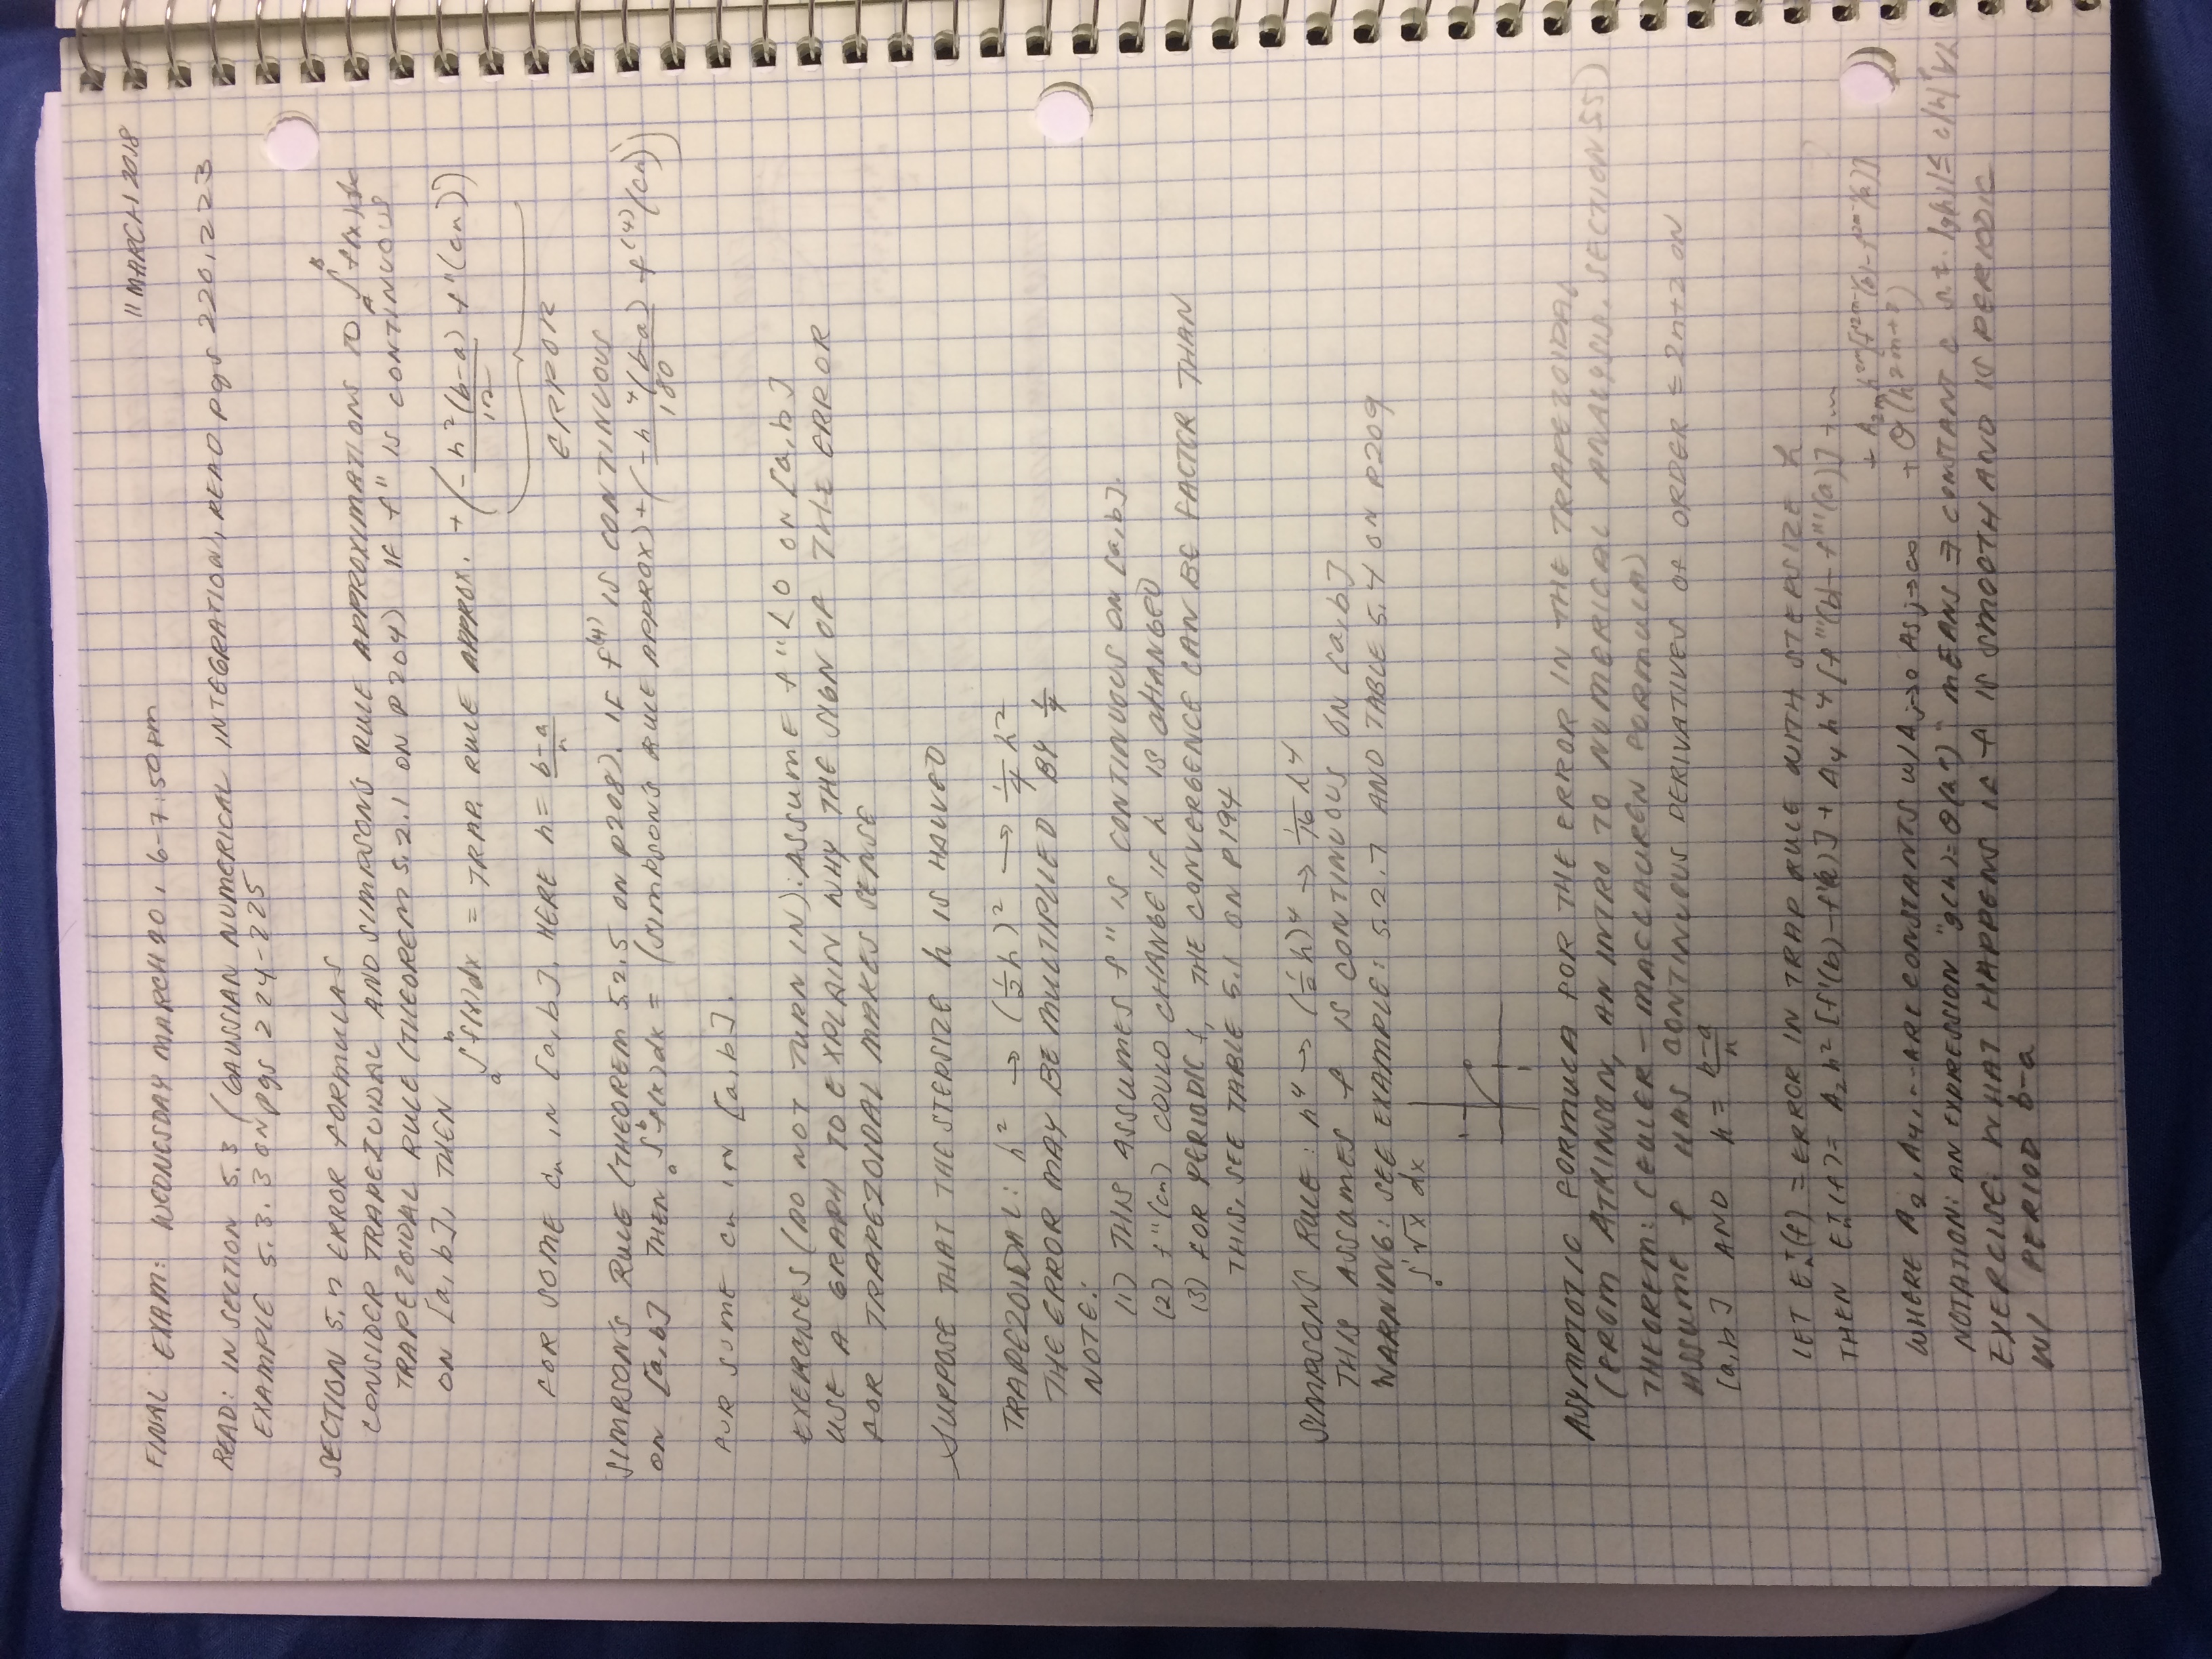 11 MARCH 2018
FINAL EXAM: WEDNESDAY MARCH 20, 6-7:50pm
READ: IN SECTION 5.3 (GAUSSIAN NUMERICAL INTEGRATION), READ pgs 220, 223
EXAMPLE 5.3.3 ON pgs 224-225
SECTION 5.2 ERROR FORMULAS
CONSIDER TRAPEZOIDAL AND SIMPSON'S RULE APPROXIMATIONS TO ∫_a^b f(x)dx
TRAPEZOIDAL RULE (THEOREM 5.2.1 ON P204) IF f'' IS CONTINUOUS
ON [a,b], THEN
∫_a^b f(x)dx = TRAP. RULE APPROX. + (-h²(b-a)/12 f''(cn))
FOR SOME cn IN [a,b]. HERE h = (b-a)/n
ERROR
SIMPSON'S RULE (THEOREM 5.2.5 ON P208). IF f⁽⁴⁾ IS CONTINUOUS
ON [a,b] THEN ∫_a^b f(x)dx = (SIMPSON'S RULE APPROX) + (-h⁴(b-a)/180 f⁽⁴⁾(cn))
FOR SOME cn IN [a,b].
EXERCISES (DO NOT TURN IN): ASSUME f'' < 0 ON [a,b]
USE A GRAPH TO EXPLAIN WHY THE SIGN OF THE ERROR
FOR TRAPEZOIDAL MAKES SENSE
SUPPOSE THAT THE STEPSIZE h IS HALVED
TRAPEZOIDAL: h² → (½h)² → ¼h²
THE ERROR MAY BE MULTIPLIED BY ¼
NOTE:
(1) THIS ASSUMES f'' IS CONTINUOUS ON [a,b].
(2) f''(cn) COULD CHANGE IF h IS CHANGED
(3) FOR PERIODIC f, THE CONVERGENCE CAN BE FACTER THAN
THIS, SEE TABLE 5.1 ON P194
SIMPSON'S RULE: h⁴ → (½h)⁴ → 1/16 h⁴
THIS ASSUMES f IS CONTINUOUS ON [a,b]
WARNING: SEE EXAMPLE: 5.2.7 AND TABLE 5.4 ON P209
∫_0^1 √x dx
1
ASYMPTOTIC FORMULA FOR THE ERROR IN THE TRAPEZOIDAL
(FROM ATKINSON, AN INTRO TO NUMERICAL ANALYSIS, SECTION 5.5)
THEOREM: (EULER-MACCLAUREN FORMULA)
ASSUME f HAS CONTINUOUS DERIVATIVES OF ORDER ≤ 2n+2 ON
[a,b] AND h = (b-a)/n
LET E_n^T(f) = ERROR IN TRAP RULE WITH STEPSIZE h
THEN E_n^T(f) = A₂h²[f'(b)-f'(a)] + A₄h⁴[f'''(b)-f'''(a)] + ...
+ A_2m h^2m [f^2m-1(b)-f^2m-1(a)]
WHERE A₂, A₄, ... ARE CONSTANTS W/ A_j→0 AS j→∞ + O(h^2m+2)
NOTATION: AN EXPRESSION "g(h)=O(h^r)" MEANS ∃ CONSTANT c s.t. |g(h)| ≤ c|h|^r ∀h
EXERCISE: WHAT HAPPENS IF f IS SMOOTH AND IS PERIODIC
W/ PERIOD b-a